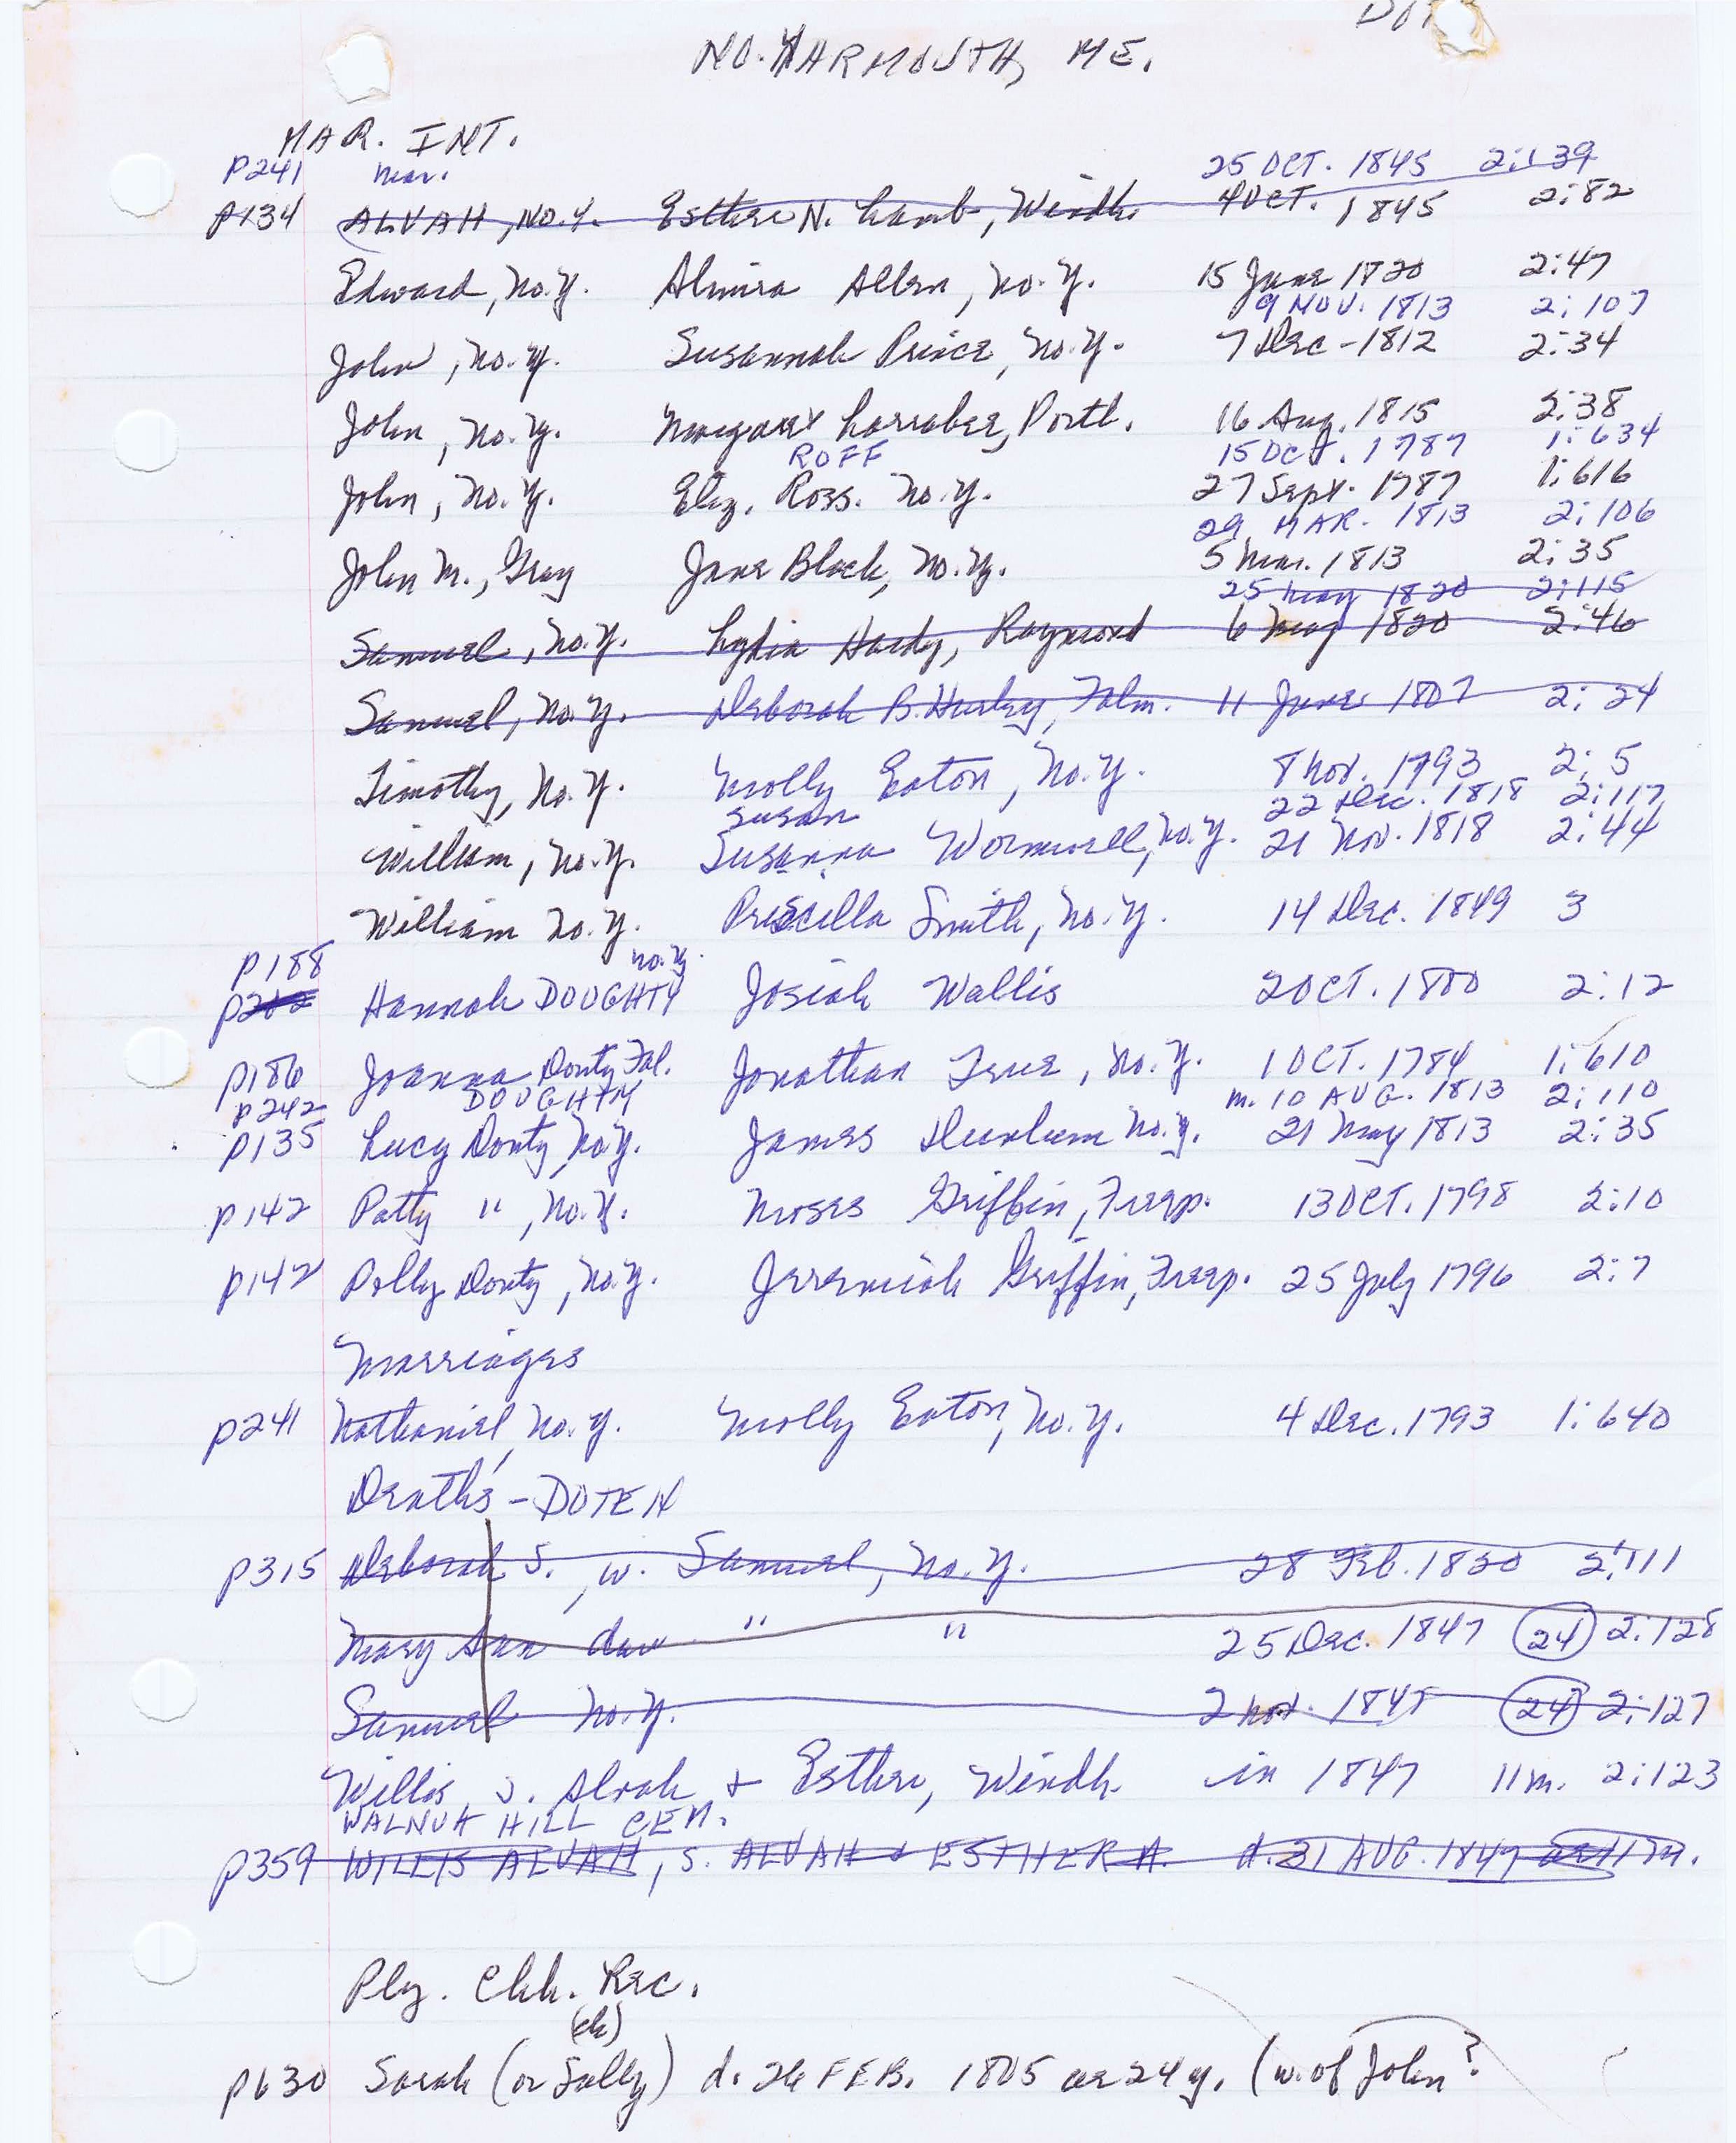 NO. YARMOUTH, ME.
MAR. INT.
p241 mar. 25 OCT. 1845 2:139
p134 ALVAH, NO. Y. Esther N. Lamb, Windh. 4 OCT. 1845 2:82
Edward, No. Y. Almira Allen, No. Y. 15 June 1820 2:47
9 NOV. 1813 2:107
John, No. Y. Susannah Prince, No. Y. 7 Dec - 1812 2:34
John, No. Y. Margaret Larrabee, Portl. 16 Aug. 1815 2:38
ROFF 15 OCT. 1787 1:634
John, No. Y. Eliz. Ross. No. Y. 27 Sept. 1787 1:616
29 MAR. 1813 2:106
John M., Gray Jane Black, No. Y. 5 Mar. 1813 2:35
25 May 1820 2:115
Samuel, No. Y. Lydia Hardy, Raymond 6 May 1820 2:46
Samuel, No. Y. Deborah B. Huxley, Falm. 11 June 1807 2:24
Timothy, No. Y. Molly Eaton, No. Y. 8 Nov. 1793 2:5
Susan 22 Dec. 1818 2:117
William, No. Y. Susanna Wormwell, No. Y. 21 Nov. 1818 2:44
William No. Y. Priscilla Smith, No. Y. 14 Dec. 1849 3
p188 No. Y.
p202 Hannah DOUGHTY Josiah Wallis 2 OCT. 1800 2:12
p186 Joanna Douty Fal. Jonathan True, No. Y. 1 OCT. 1784 1:610
p242 DOUGHTY m. 10 AUG. 1813 2:110
p135 Lucy Douty, No. Y. James Dunham No. Y. 21 May 1813 2:35
p142 Patty ", No. Y. Moses Griffin, Freep. 13 OCT. 1798 2:10
p142 Polly Douty, No. Y. Jeremiah Griffin, Freep. 25 July 1796 2:7
Marriages
p241 Nathaniel, No. Y. Molly Eaton, No. Y. 4 Dec. 1793 1:640
Deaths - DOTEN
p315 Deborah S., w. Samuel, No. Y. 28 Feb. 1820 2:111
Mary Ann dau " " 25 Dec. 1847 24 2:128
Samuel No. Y. 2 Nov. 184 24 2:127
Willis, s. Alvah + Esther, Windh. in 1847 11m. 2:123
WALNUT HILL CEM.
p359 WILLIS ALVAH, s. ALVAH & ESTHER A. d. 31 AUG. 1847 ae 11 m.
Ply. Chh. Rec.
(ch)
p630 Sarah (or Sally) d. 26 FEB. 1805 ae 24 y. (w. of John?